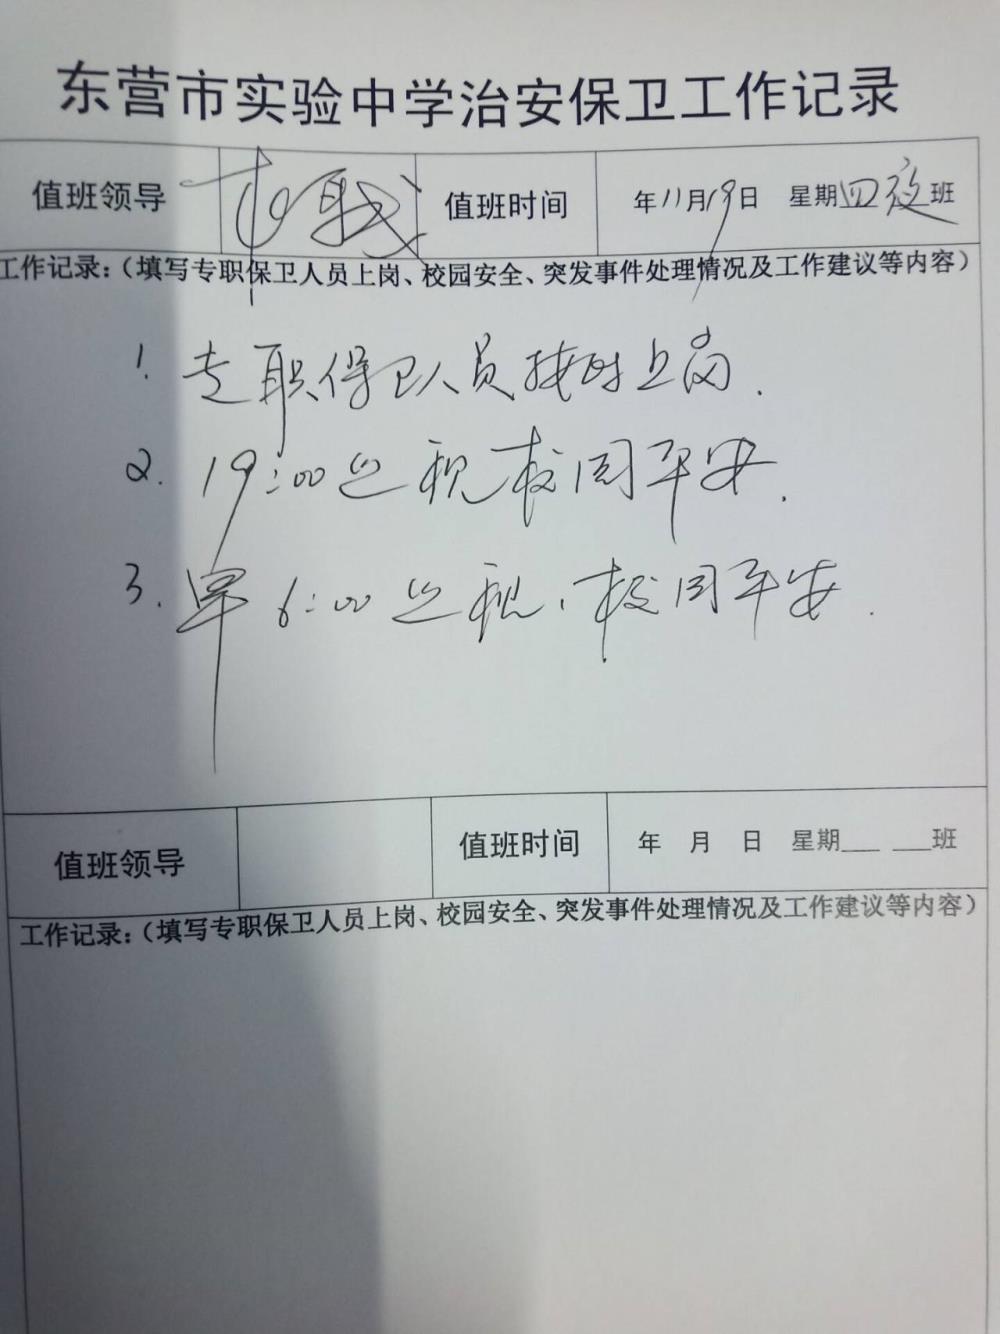 东营市实验中学治安保卫工作记录
值班领导 值班时间 年11月19日 星期四夜班
工作记录:(填写专职保卫人员上岗、校园安全、突发事件处理情况及工作建议等内容)
1. 专职保卫人员按时上岗.
2. 19:00巡视校园平安.
3. 早6:00巡视,校园平安.
值班领导 值班时间 年 月 日 星期___ ___班
工作记录:(填写专职保卫人员上岗、校园安全、突发事件处理情况及工作建议等内容)